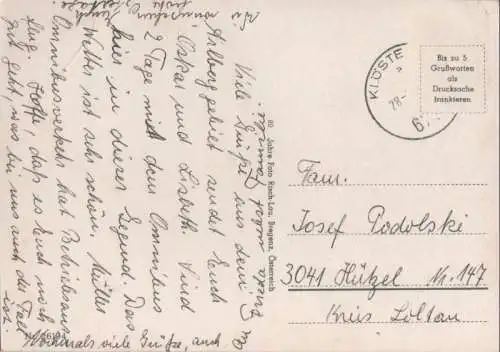 Viele Grüße aus dem
Arlberggebiet sendet Euch
Oskar und Lisbeth. Sind
2 Tage mit dem Omnibus
hier in dieser Gegend. Das
Wetter ist sehr schön. Müllers
Omnibusverkehr hat Betriebsaus-
flug. Hoffe, daß es Euch noch
gut geht, was bei uns auch der Fall
ist.
Nochmals viele Grüße, auch
Wir wünschen Euch
frohe
Familie.
80 Jahre Foto Risch-Lau, Bregenz, Österreich
KLÖSTE
28.
Bis zu 5
Grußworten
als
Drucksache
frankieren.
Fam.
Josef Podolski
3041 Hützel Nr. 147
Kreis Soltau